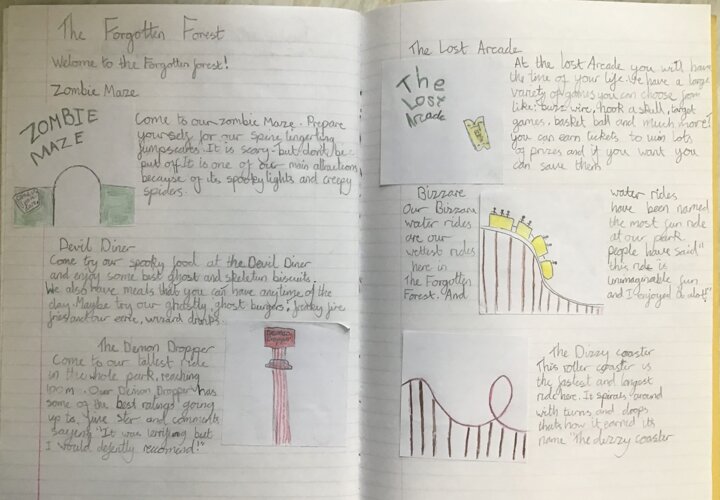 The Forgotten Forest
Welcome to the Forgotten forest!
Zombie Maze
ZOMBIE
MAZE
Come to our zombie Maze. Prepare
yourself for our spine lingerling
jumpscares. It is scary - but dont be
put off. It is one of our main attractions
because of its spooky lights and creepy
spiders.
Devil Diner
Come try our spooky food at the Devil Diner
and enjoy some best ghost and skeleton biscuits.
We also have meals that you can have anytime of the
day. Maybe try our ghastly, ghost burgers, freaky fire
fries and our eerie, wizard drinks.
The Demon Dropper
Come to our tallest ride
in the whole park, reaching
100m. Our Demon Dropper has
some of the best ratings going
up to five star and comments
saying "It was terrifying but
I would defently recommend!"
Demon
Dropper
The Lost Arcade
The
Lost
Arcade
At the lost Arcade you will have
the time of your life. We have a large
variety of games you can choose from
like: buzz wire, hook a skull, target
games, basket ball and much more!
you can earn tickets to win lots
of prizes and if you want you
can save them.
Bizzare
Our Bizzare
water rides
are our
wettest rides
here in
The Forgotten
Forest. And
water rides
have been named
the most fun ride
at our park
people have said "
this ride is
unimaginable fun
and I enjoyed it alot!"
The Dizzy coaster
This roller coaster is
the fastest and longest
ride here. It spirals around
with turns and drops
thats how it earned its
name "The dizzy coaster